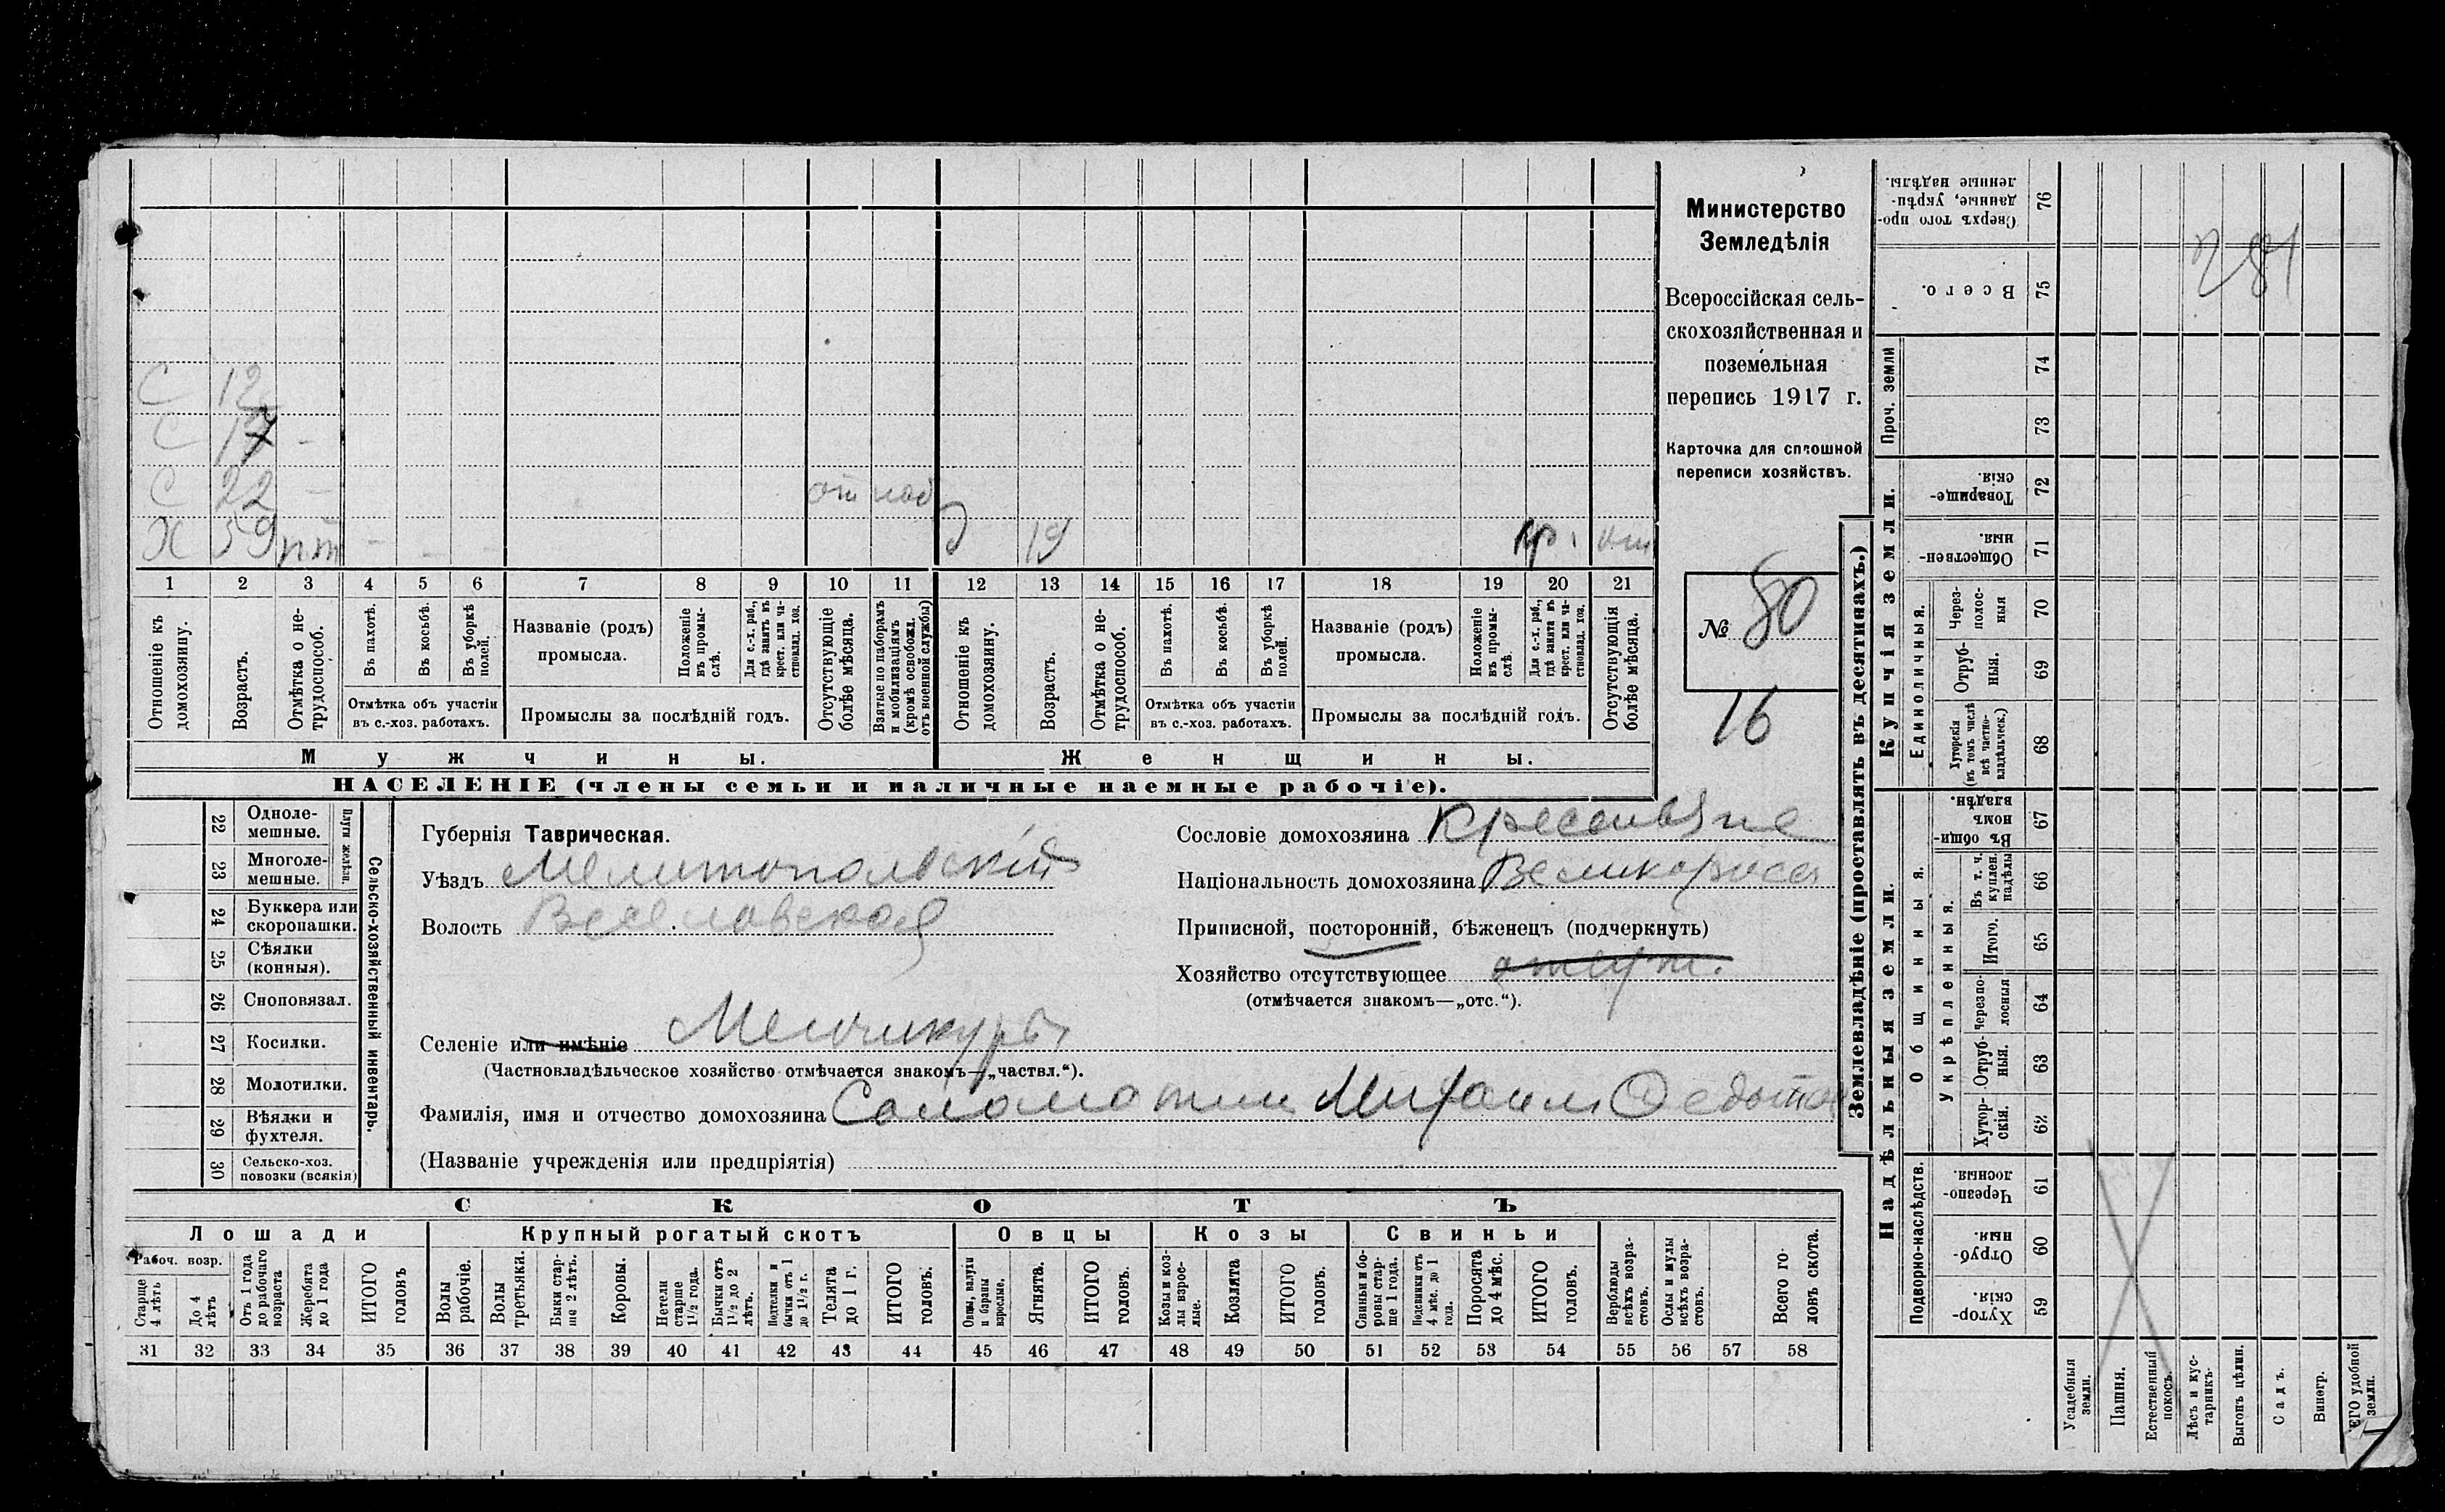 С 12
С 17 -
С 22 -
Х 59 - - -
19 кр.
1 2 3 4 5 6 7 8 9 10 11 12 13 14 15 16 17 18 19 20 21
Отношеніе къ домохозяину.
Возрастъ.
Отмѣтка о нетрудоспособ.
Въ пахотѣ.
Въ косьбѣ.
Въ уборкѣ полей.
Отмѣтка объ участіи въ с.-хоз. работахъ.
Названіе (родъ) промысла.
Положеніе въ промыслѣ.
Для с.-х. раб., гдѣ занятъ въ крест. или частновлад. хоз.
Промыслы за послѣдній годъ.
Отсутствующіе болѣе мѣсяца.
Взятые по наборамъ и мобилизаціямъ (кромѣ освобожд. отъ военной службы)
Отношеніе къ домохозяину.
Возрастъ.
Отмѣтка о нетрудоспособ.
Въ пахотѣ.
Въ косьбѣ.
Въ уборкѣ полей.
Отмѣтка объ участіи въ с.-хоз. работахъ.
Названіе (родъ) промысла.
Положеніе въ промыслѣ.
Для с.-х. раб., гдѣ занята въ крест. или частновлад. хоз.
Промыслы за послѣдній годъ.
Отсутствующія болѣе мѣсяца.
Мужчины.
Женщины.
НАСЕЛЕНІЕ (члены семьи и наличные наемные рабочіе).
Министерство
Земледѣлія
Всероссійская сель-
скохозяйственная и
поземельная
перепись 1917 г.
Карточка для сплошной
переписи хозяйствъ.
№ 80
16
22 Одноле-
мешные.
23 Многоле-
мешные.
Плуги желѣзн.
24 Буккера или
скоропашки.
25 Сѣялки
(конныя).
26 Сноповязал.
27 Косилки.
28 Молотилки.
29 Вѣялки и
фухтеля.
30 Сельско-хоз.
повозки (всякія)
Сельско-хозяйственный инвентарь.
Губернія Таврическая.
Уѣздъ Мелитопольскій
Волость Веселовская
Сословіе домохозяина Крестьяне
Національность домохозяина Великороссы
Приписной, посторонній, бѣженецъ (подчеркнуть)
Хозяйство отсутствующее
(отмѣчается знакомъ—„отс.“).
Селеніе или имѣніе Менчикуры
(Частновладѣльческое хозяйство отмѣчается знакомъ—„частвл.“).
Фамилія, имя и отчество домохозяина Саломатин Михаил Федотов
(Названіе учрежденія или предпріятія)
СКОТЪ
Лошади Крупный рогатый скотъ Овцы Козы Свиньи
Рабоч. возр.
Старще 4 лѣтъ
До 4 лѣтъ
Отъ 1 года до рабочаго возраста
Жеребята до 1 года
ИТОГО головъ
Волы рабочіе.
Волы третьяки.
Быки старше 2 лѣтъ.
Коровы.
Нетели старше 1½ года.
Бычки отъ 1½ до 2 лѣтъ.
Подтелки и бычки отъ 1 до 1½ г.
Телята до 1 г.
ИТОГО головъ.
Овцы, валухи и бараны взрослые.
Ягнята.
ИТОГО головъ.
Козы и козлы взрослые.
Козлята
ИТОГО головъ.
Свиньи и боровы старше 1 года.
Подсвинки отъ 4 мѣс. до 1 года.
Поросята до 4 мѣс.
ИТОГО головъ.
Верблюды всѣхъ возрастовъ.
Ослы и мулы всѣхъ возрастовъ.
Всего головъ скота.
31 32 33 34 35 36 37 38 39 40 41 42 43 44 45 46 47 48 49 50 51 52 53 54 55 56 57 58
Землевладѣніе (проставлять въ десятинахъ.)
Надѣльныя земли.
Купчія земли.
Проч. земли
Подворно-наслѣдств.
Общинныя.
Укрѣпленныя.
Единоличныя.
Сверхъ того проданные, укрѣпленные надѣлы. 76
Всего. 75
74
73
Товарищескія. 72
Общественныя. 71
Черезполосныя 70
Отрубныя. 69
Хуторскія (въ томъ числѣ всѣ частновладѣльческ.) 68
Въ общинномъ владѣн. 67
Въ т. ч. куплен. надѣлы 66
Итого. 65
Черезполосныя 64
Отрубныя. 63
Хуторскія. 62
Черезполосныя. 61
Отрубныя. 60
Хуторскія. 59
Усадебныя земли.
Пашня.
Естественный покосъ.
Лѣсъ и кустарникъ.
Выгонъ цѣлин.
Садъ.
Виногр.
ЕГО удобной земли.
7